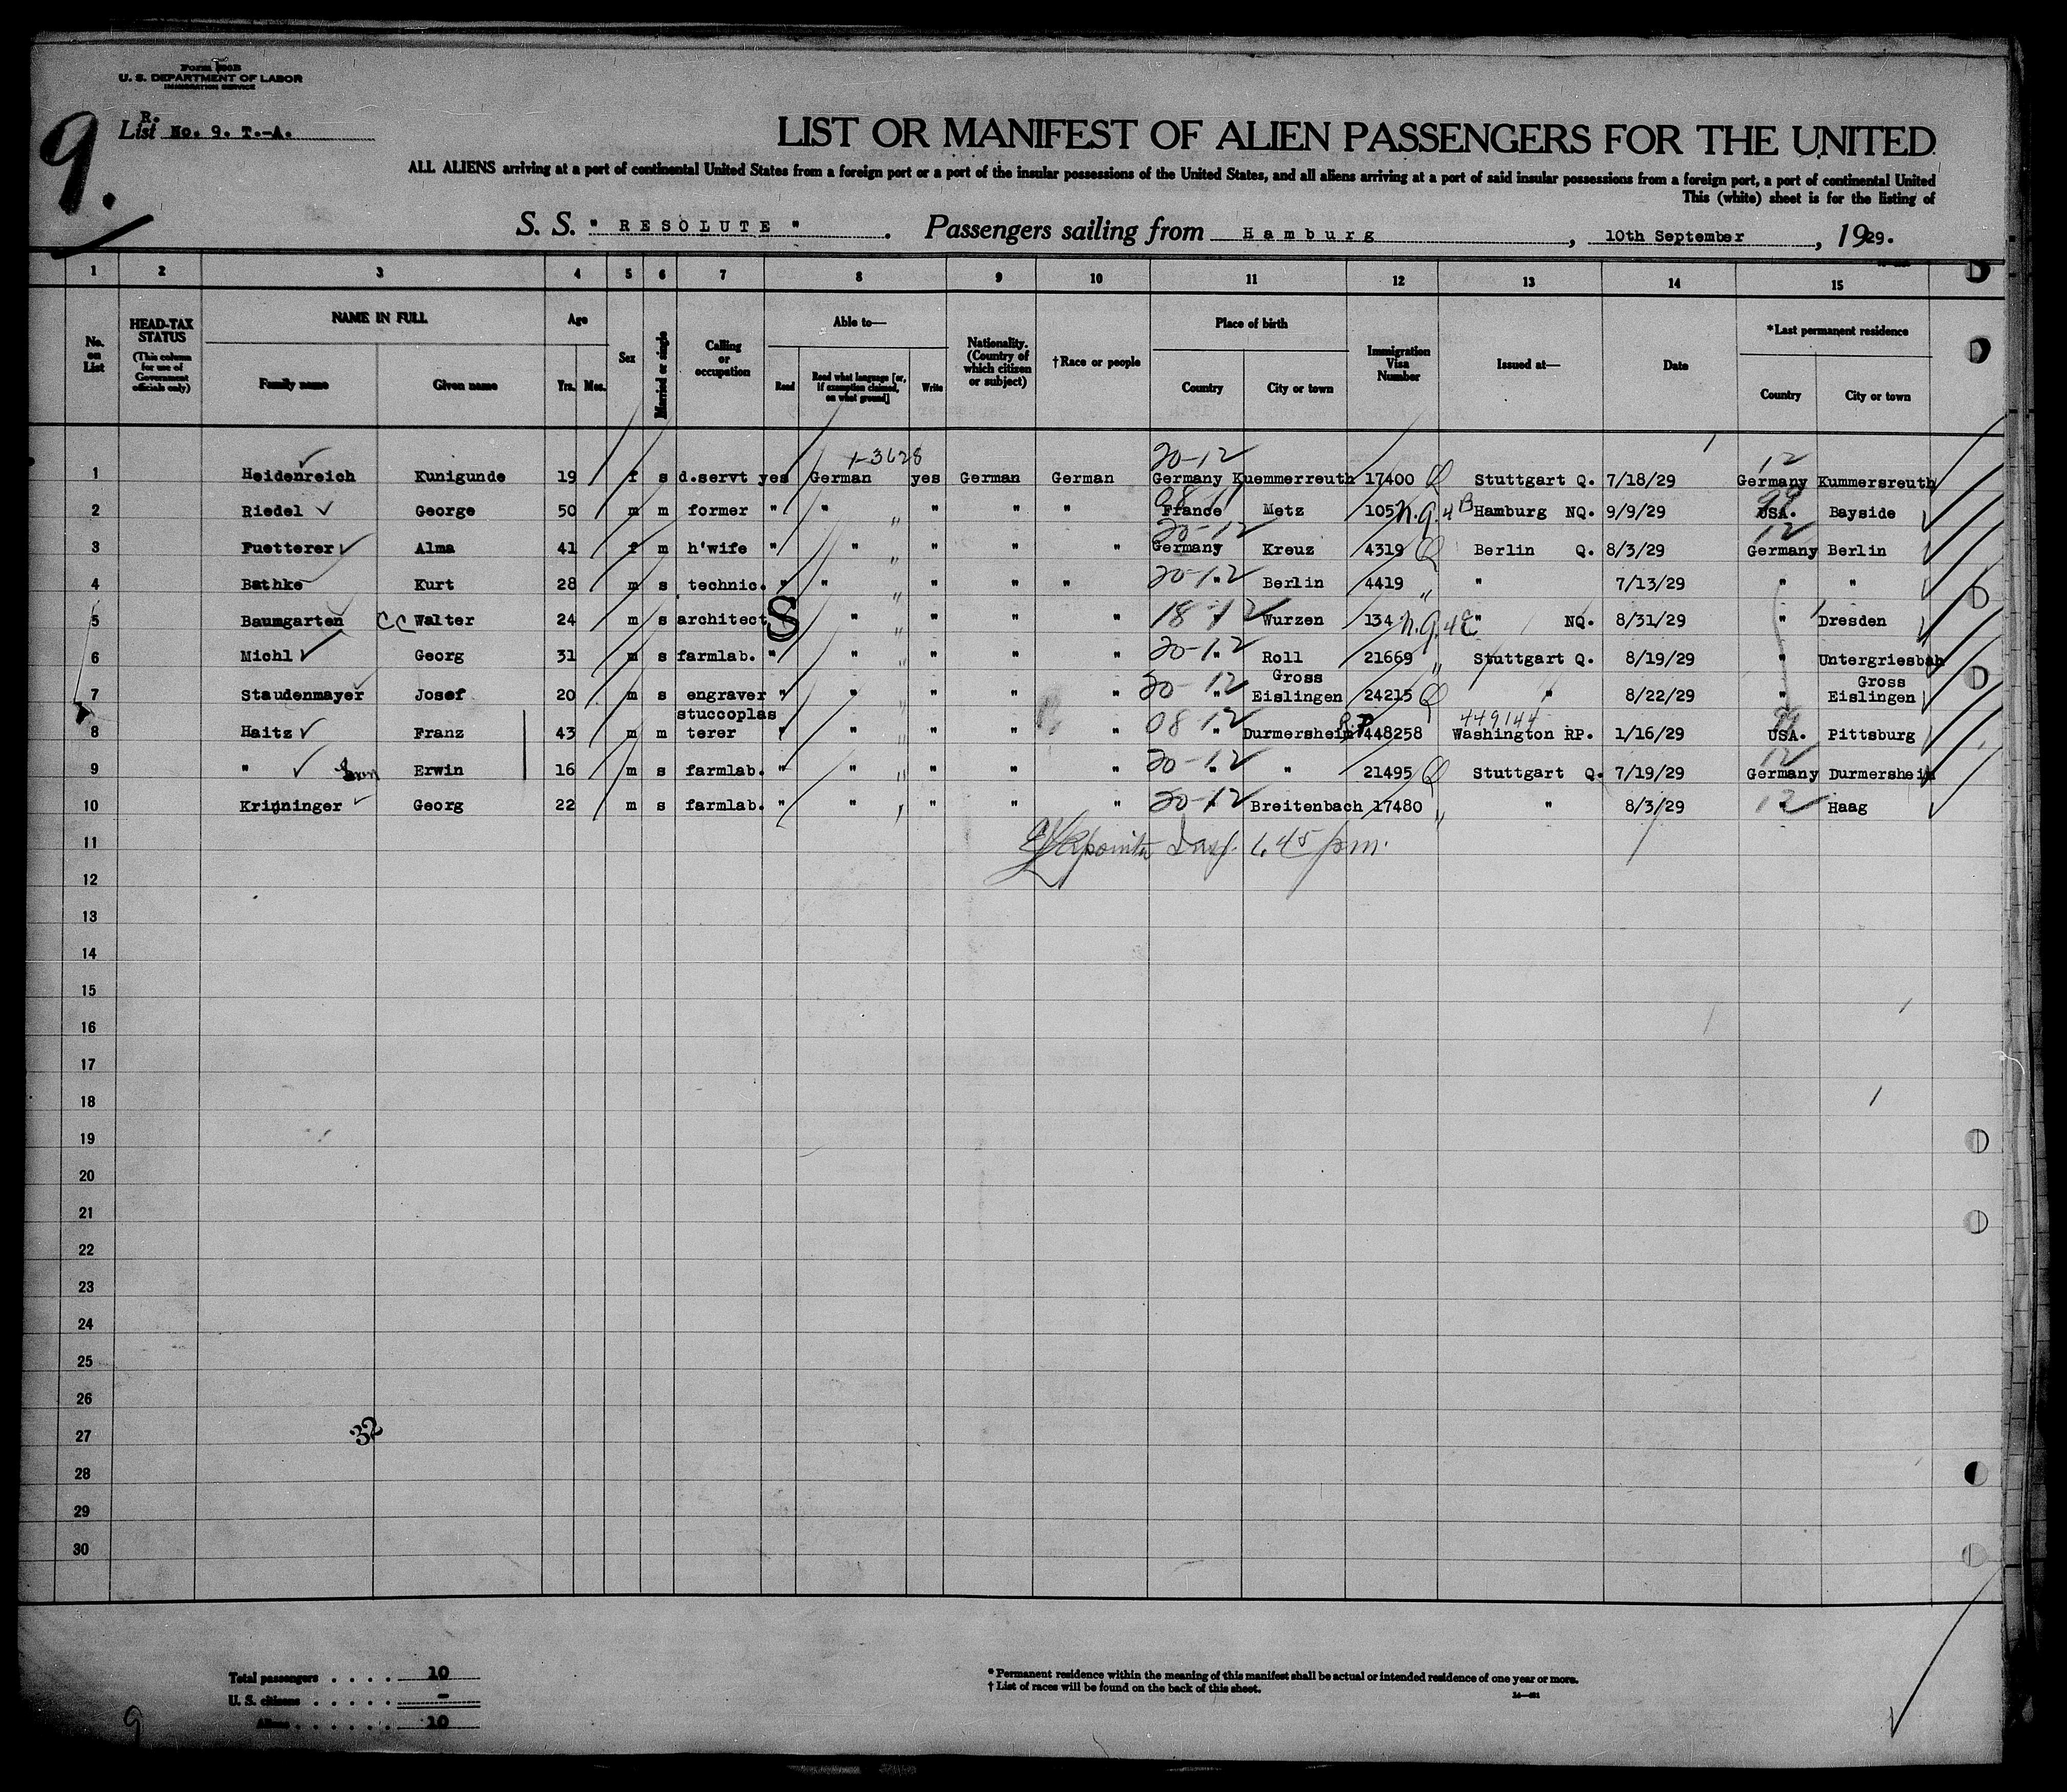 Form 500B
U. S. DEPARTMENT OF LABOR
IMMIGRATION SERVICE
9.
R.
List No. 9. T.-A.
LIST OR MANIFEST OF ALIEN PASSENGERS FOR THE UNITED
ALL ALIENS arriving at a port of continental United States from a foreign port or a port of the insular possessions of the United States, and all aliens arriving at a port of said insular possessions from a foreign port, a port of continental United
This (white) sheet is for the listing of
S. S. " RESOLUTE " . Passengers sailing from Hamburg , 10th September , 1929.
1 2 3 4 5 6 7 8 9 10 11 12 13 14 15
No. on List HEAD-TAX STATUS (This column for use of Government officials only) NAME IN FULL Family name Given name Age Yrs. Mos. Sex Married or single Calling or occupation Able to— Read Read what language [or, if exemption claimed, on what ground] Write Nationality. (Country of which citizen or subject) †Race or people Place of birth Country City or town Immigration Visa Number Issued at— Date *Last permanent residence Country City or town
1-3628 20-12 12
1 Heidenreich Kunigunde 19 f s d.servt yes German yes German German Germany Kuemmerreuth 17400 Q Stuttgart Q. 7/18/29 Germany Kummersreuth
08 11 99
2 Riedel George 50 m m former " " " " " France Metz 1057 n.q.4 B Hamburg NQ. 9/9/29 USA. Bayside
20-12 12
3 Fuetterer Alma 41 f m h'wife " " " " " Germany Kreuz 4319 Q Berlin Q. 8/3/29 Germany Berlin
4 Bathke Kurt 28 m s technic. " " " " " 20-12 " Berlin 4419 " " 7/13/29 " "
5 Baumgarten CC Walter 24 m s architect S " " " " 18-12 " Wurzen 134 n.q.4E " NQ. 8/31/29 " Dresden
6 Michl Georg 31 m s farmlab. " " " " " 20-12 " Roll 21669 " Stuttgart Q. 8/19/29 " Untergriesbah
7 Staudenmayer Josef 20 m s engraver " " " " " 20-12 " Gross Eislingen 24215 Q " 8/22/29 " Gross Eislingen
8 Haitz Franz 43 m m stuccoplas terer " " " " " 08 12 " Durmersheim R.P. 448258 449144 Washington RP. 1/16/29 99 USA. Pittsburg
9 " Erwin 16 m s farmlab. " " " " " 20-12 " " 21495 Q Stuttgart Q. 7/19/29 12 Germany Durmersheim
10 Krinninger Georg 22 m s farmlab. " " " " " 20-12 " Breitenbach 17480 " " 8/3/29 12 " Haag
11 1.45 pm.
12
13
14
15
16
17
18
19
20
21
22
23
24
25
26
27 32
28
29
30
Total passengers . . . . 10
U. S. citizens . . . . . -
Aliens . . . . . . 10
* Permanent residence within the meaning of this manifest shall be actual or intended residence of one year or more.
† List of races will be found on the back of this sheet.
9